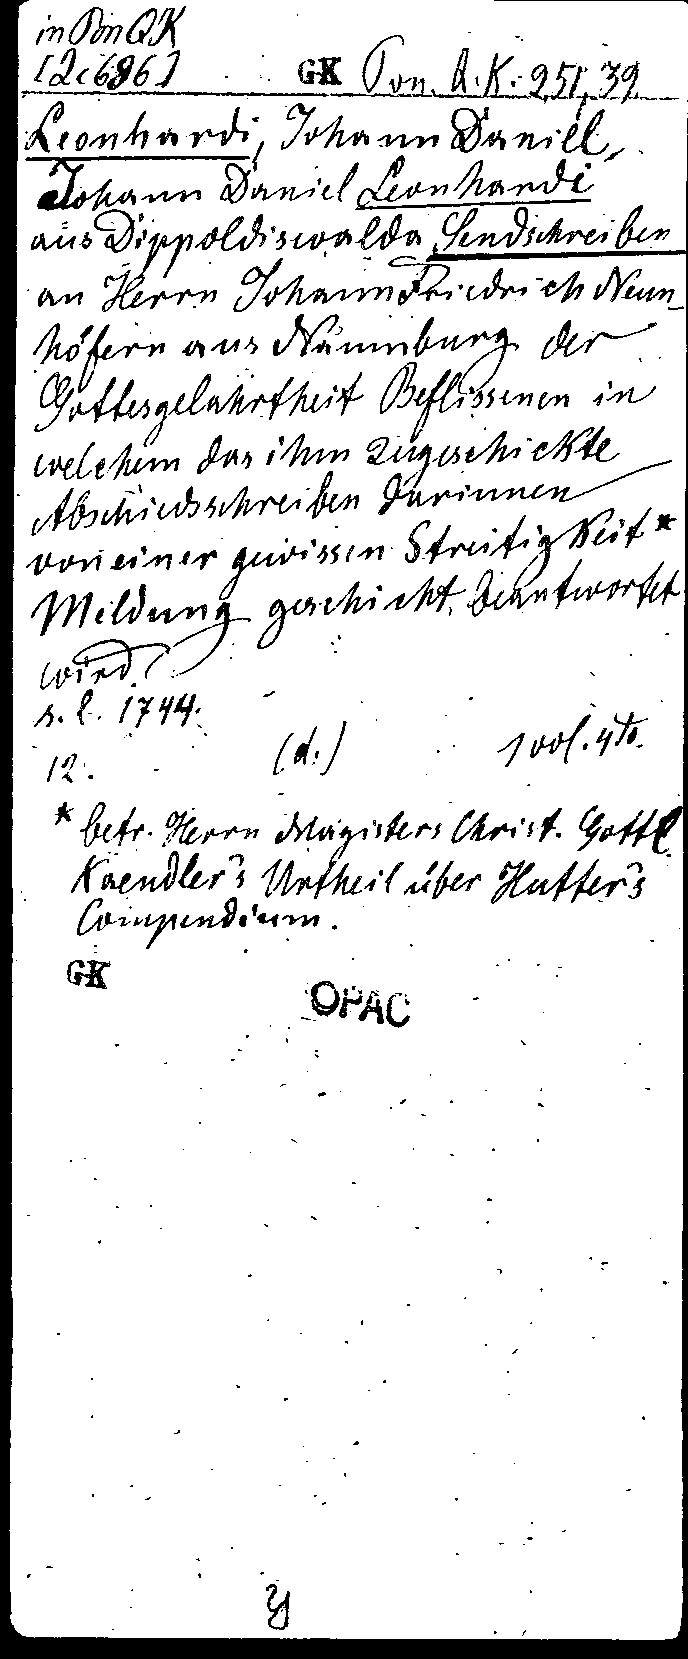 in Pon QK
[2c686]
GK Pon. Q. K. 251, 39
Leonhardi, Johann Daniel,
Johann Daniel Leonhardi
aus Dippoldiswalda Sendschreiben
an Herrn Johann Friedrich Neun-
höfern aus Naumburg der
Gottesgelahrtheit Beflissenen in
welchem das ihm zugeschickte
Abschiedsschreiben darinnen
von einer gewissen Streitigkeit*
Meldung geschieht, beantwortet
wird.
s. l. 1744.
12. (d.) 1 vol. 4to.
* betr. Herrn Magisters Christ. Gottl.
Kaendler's Urtheil über Hutter's
Compendium.
GK
OPAC